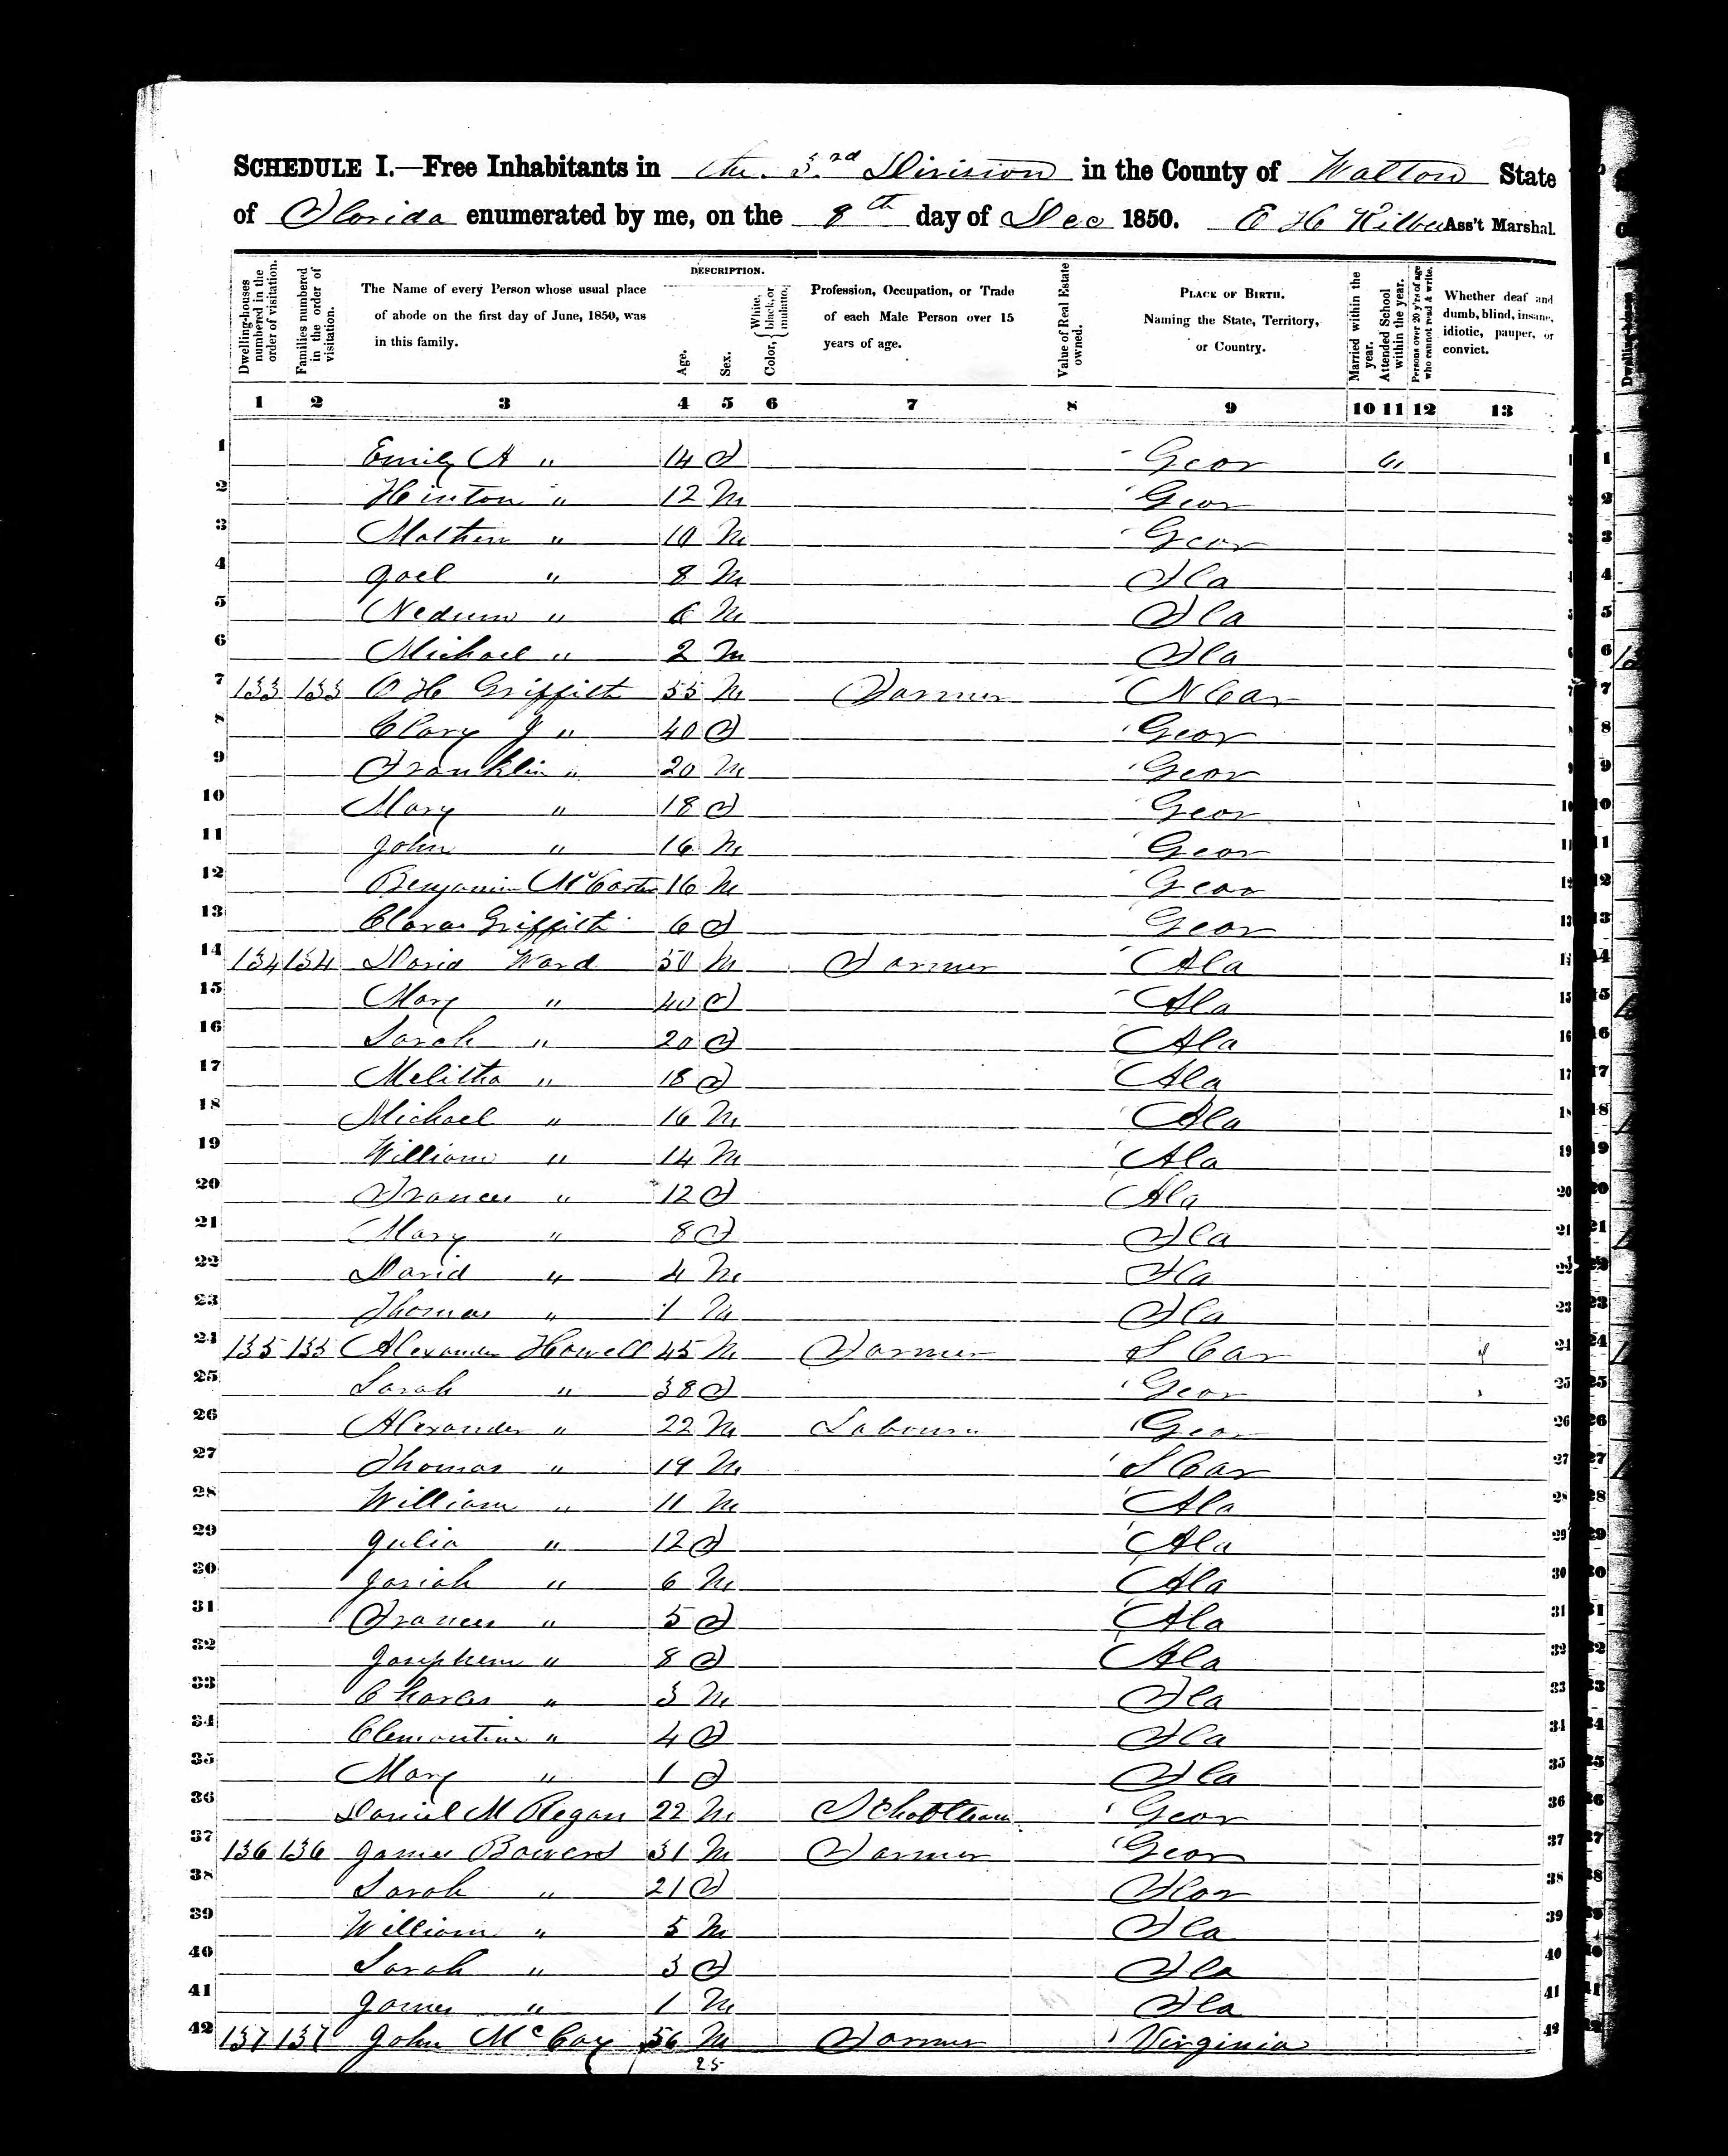 SCHEDULE I.—Free Inhabitants in the 3rd Division in the County of Walton State
of Florida enumerated by me, on the 8th day of Dec 1850. E H Ass't Marshal.
Dwelling-houses numbered in the order of visitation.
Families numbered in the order of visitation.
The Name of every Person whose usual place of abode on the first day of June, 1850, was in this family.
DESCRIPTION.
Age.
Sex.
Color, { White, black, or mulatto.
Profession, Occupation, or Trade of each Male Person over 15 years of age.
Value of Real Estate owned.
PLACE OF BIRTH. Naming the State, Territory, or Country.
Married within the year.
Attended School within the year.
Persons over 20 y'rs of age who cannot read & write.
Whether deaf and dumb, blind, insane, idiotic, pauper, or convict.
1 2 3 4 5 6 7 8 9 10 11 12 13
1 Emily A " 14 F Geor 1
2 Hinton " 12 M Geor 2
3 Mathew " 10 M Geor 3
4 Joel " 8 M Fla 4
5 Nedum " 6 M Fla 5
6 Michael " 2 M Fla 6
7 133 133 O H Griffith 55 M Farmer N Car 7
8 Clary J " 40 F Geor 8
9 Franklin " 20 M Geor 9
10 Mary " 18 F Geor 10
11 John " 16 M Geor 11
12 Benjamin 16 M Geor 12
13 Clara Griffith 6 F Geor 13
14 134 134 David Ward 50 M Farmer Ala 14
15 Mary " 40 F Ala 15
16 Sarah " 20 F Ala 16
17 Melitha " 18 F Ala 17
18 Michael " 16 M Ala 18
19 William " 14 M Ala 19
20 Frances " 12 F Ala 20
21 Mary " 8 F Fla 21
22 David " 4 M Fla 22
23 Thomas " 1 M Fla 23
24 135 135 Alexander Howell 45 M Farmer S Car 24
25 Sarah " 38 F Geor 25
26 Alexander " 22 M Labourer Geor 26
27 Thomas " 19 M S Car 27
28 William " 11 M Ala 28
29 Julia " 12 F Ala 29
30 Josiah " 6 M Ala 30
31 Frances " 5 F Ala 31
32 " 8 F Ala 32
33 Charles " 3 M Fla 33
34 Clementine " 4 F Fla 34
35 Mary " 1 F Fla 35
36 Daniel M Regan 22 M Geor 36
37 136 136 James Bowers 31 M Farmer Geor 37
38 Sarah " 21 F Flor 38
39 William " 5 M Fla 39
40 Sarah " 3 F Fla 40
41 James " 1 M Fla 41
42 137 137 John McCoy 56 M Farmer Virginia 42
25